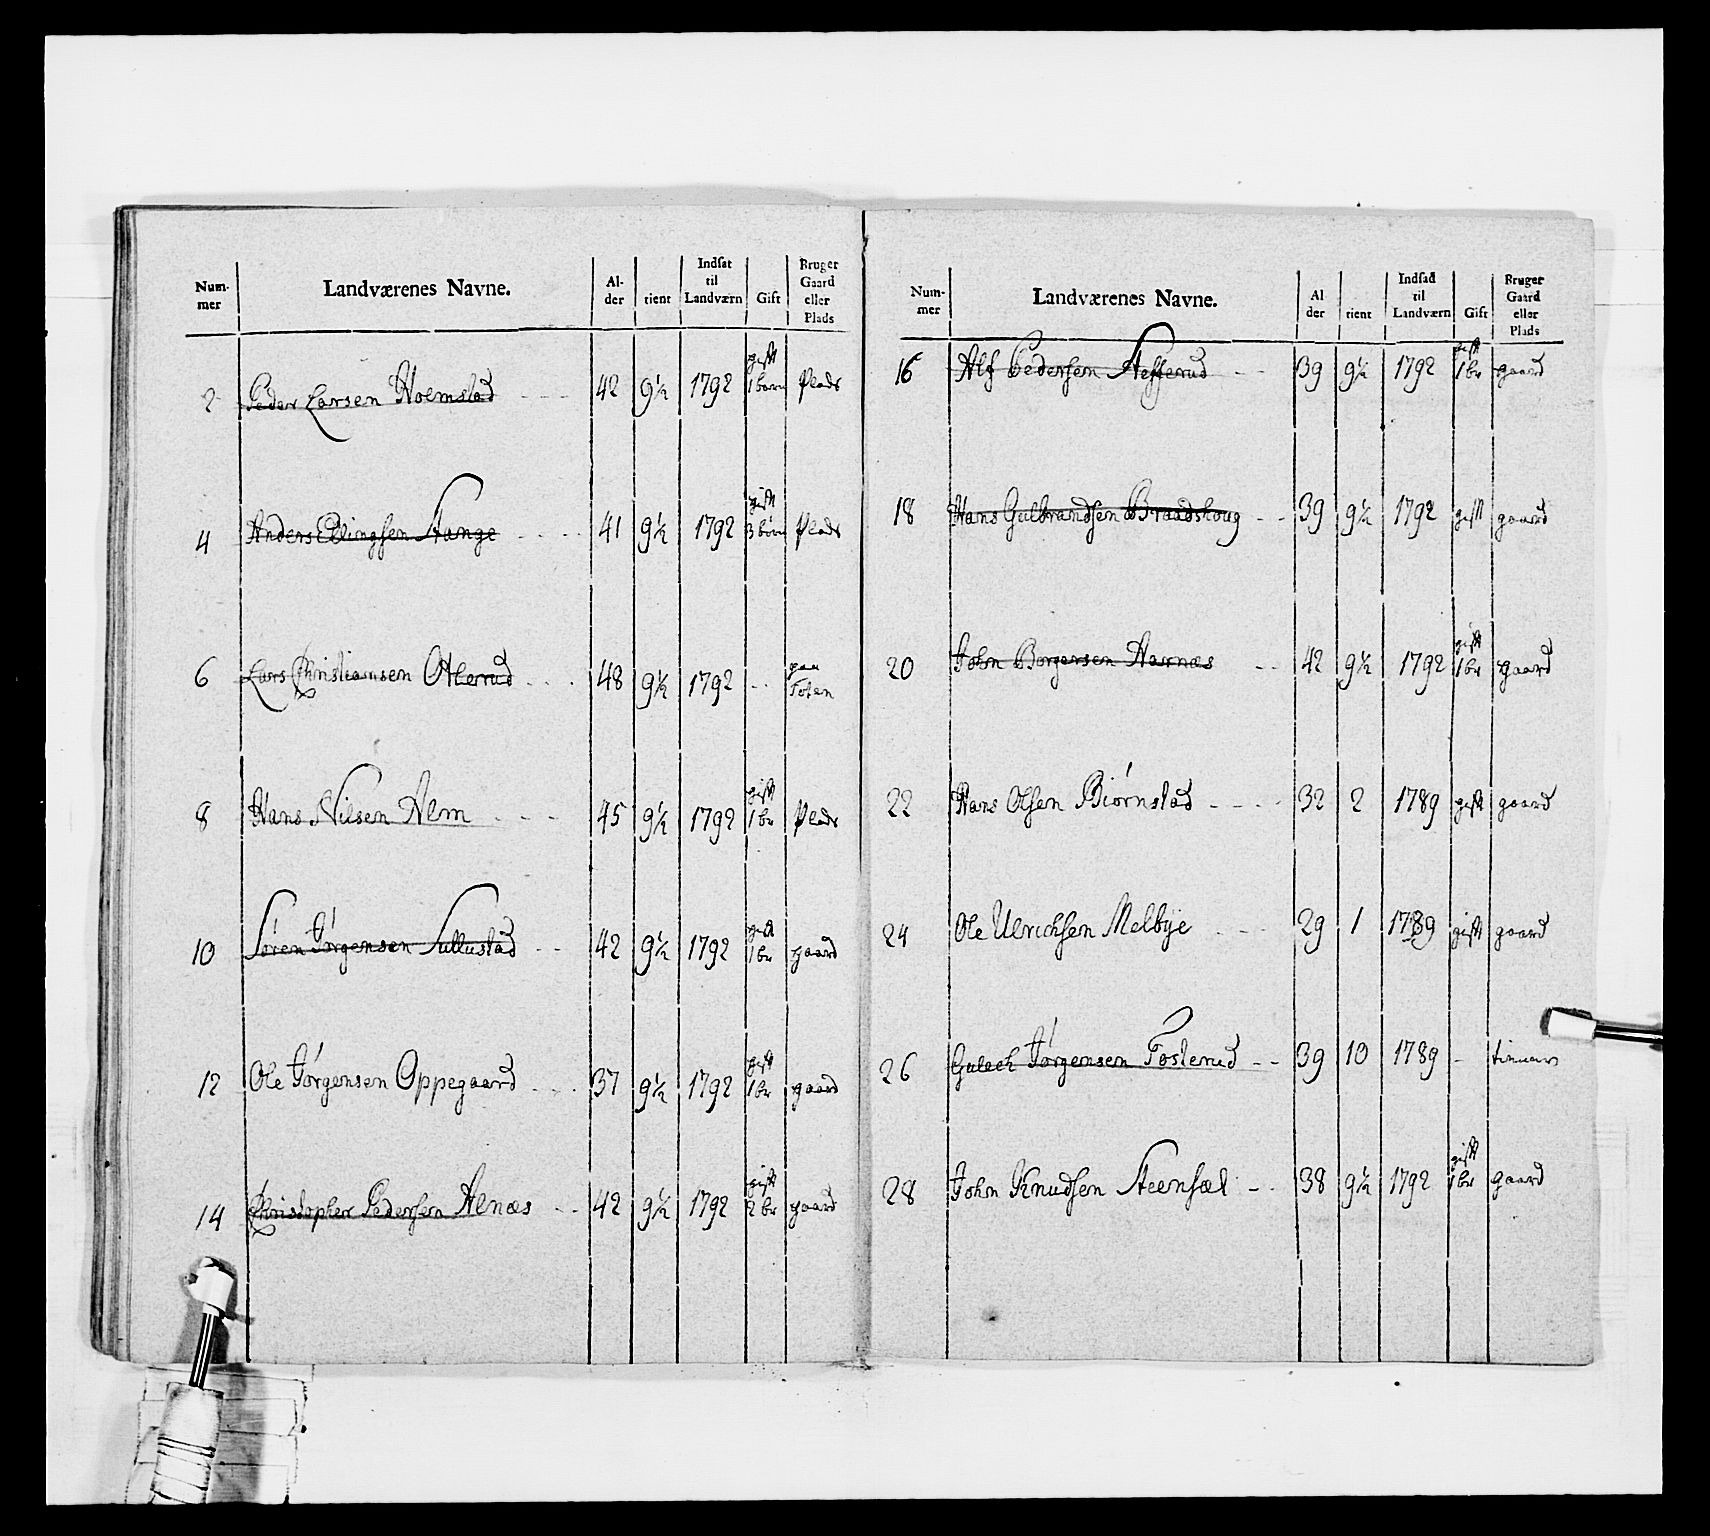 Num-
mer
Landværenes Navne.
Al-
der
tient
Indsat
til
Landværn
Gift
Bruger
Gaard
eller
Plads
2 Peder Larsen Holmstad 42 9½ 1792 gift 1 barn Plads
4 Anders Ellingsen Stange 41 9½ 1792 gift 3 børn Plads
6 Lars Christiansen Otlerud 48 9½ 1792 - - paa Toten
8 Hans Nilsen Alm 45 9½ 1792 gift 1 br Plads
10 Søren Jørgensen Sullustad 42 9½ 1792 gift 1 br gaard
12 Ole Jørgensen Oppegaard 37 9½ 1792 gift 1 br gaard
14 Christopher Pedersen Alnæs 42 9½ 1792 gift 2 br gaard
Num-
mer
Landværenes Navne.
Al
der
tient
Indsad
til
Landværn
Gift
Bruger
Gaard
eller
Plads
16 Alf Pedersen Stefferud 39 9½ 1792 gift 1 br gaard
18 Hans Gulbrandsen Braadshoug 39 9½ 1792 gift gaard
20 John Borgersen Harnæs 42 9½ 1792 gift 1 br gaard
22 Hans Olsen Biørnstad 32 2 1789 gift gaard
24 Ole Ulrichsen Melbÿe 29 1 1789 gift gaard
26 Gulech Jørgensen Fosterud 39 10 1789 -
28 John Knudsen Steensæt 38 9½ 1792 gift 1 br gaard